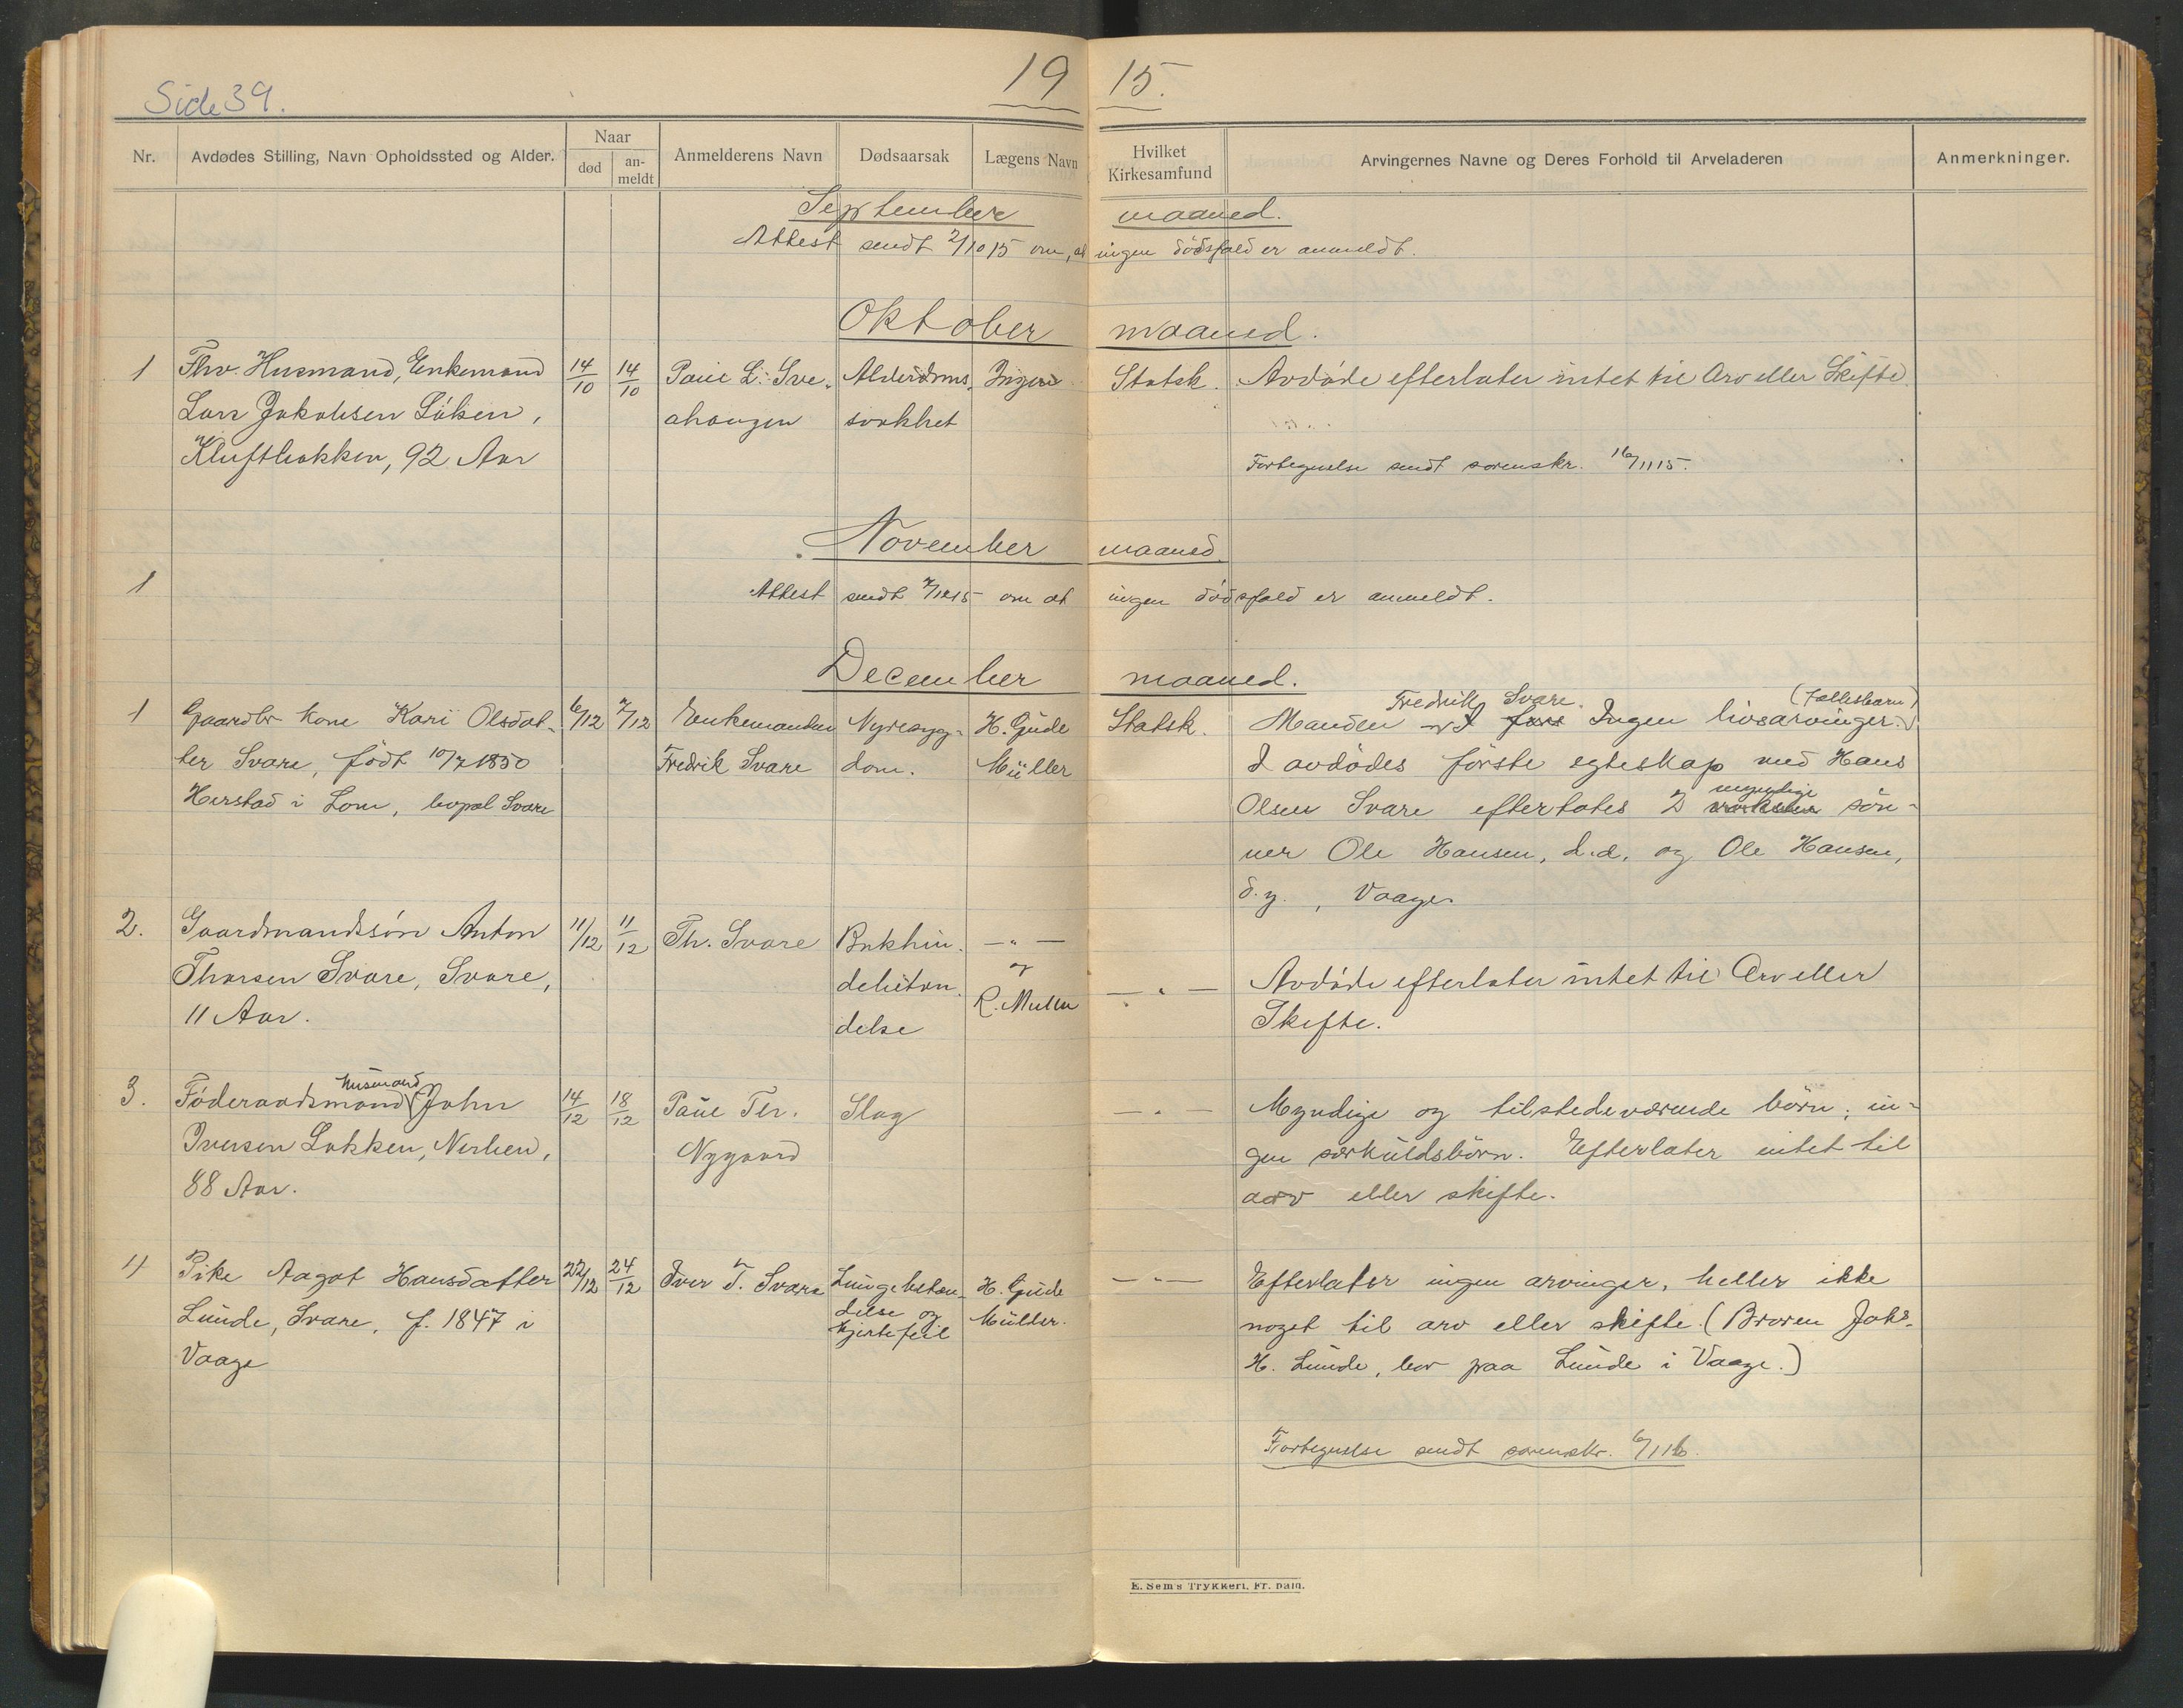 Side 39.
19 15.
Nr.
Avdødes Stilling, Navn Opholdssted og Alder.
Naar
død
an-
meldt
Anmelderens Navn
Dødsaarsak
Lægens Navn
Hvilket
Kirkesamfund
Arvingernes Navne og Deres Forhold til Arveladeren
Anmerkninger.
September maaned.
Attest sendt 2/10 15 om, at ingen dødsfald er anmeldt.
Oktober maaned.
1 Fhv. Husmand, Enkemand 14/10 14/10 Paul L. Sve- Alderdoms- Ingen Statsk. Avdøde efterlater intet til Arv eller Skifte
Lars Jakobsen Løken, ahaugen svakhet
Kluftbakken, 92 Aar Fortegnelse sendt sorenskr. 16/11 15.
November maaned.
1 Attest sendt 7/12 15 om at ingen dødsfald er anmeldt.
December maaned.
Fredrik Svare. (fællesbarn)
1 Gaardbr kone Kari Olsdat- 6/12 7/12 Enkemanden Nyresyg- H. Gude Statsk. Manden Ingen livsarvinger.
ter Svare, født 10/7 1850 Fredrik Svare dom. Müller I avdødes første egteskap med Hans
myndige
Herstad i Lom, bopæl Svare Olsen Svare efterlates 2 voksne søn-
ner Ole Hansen, d.æ. og Ole Hansen,
d.y., Vaage.
2. Gaardmandssøn Anton 11/12 11/12 Th. Svare Bukhin- —"—
Thorsen Svare, Svare, debetæn- og —"— Avdøde efterlater intet til Arv eller
11 Aar. delse R. Müller Skifte.
husmand
3. Føderaadsmand John 14/12 18/12 Paul Ter. Slag —"— Myndige og tilstedeværende børn; in-
Iversen Løkken, Nerlien, Nygaard gen særkuldsbørn. Efterlater intet til
88 Aar. arv eller skifte.
4 Pike Aagot Hansdatter 22/12 24/12 Iver T. Svare Lungebetæn- H. Gude —"— Efterlater ingen arvinger, heller ikke
Lunde, Svare, f. 1847 i delse og Müller. noget til arv eller skifte. (Broren Jakob
Vaage hjertefeil H. Lunde, bor paa Lunde i Vaage.)
Fortegnelse sendt sorenskr. 6/1 16.
E. Sem's Trykkeri, Fr. hald.